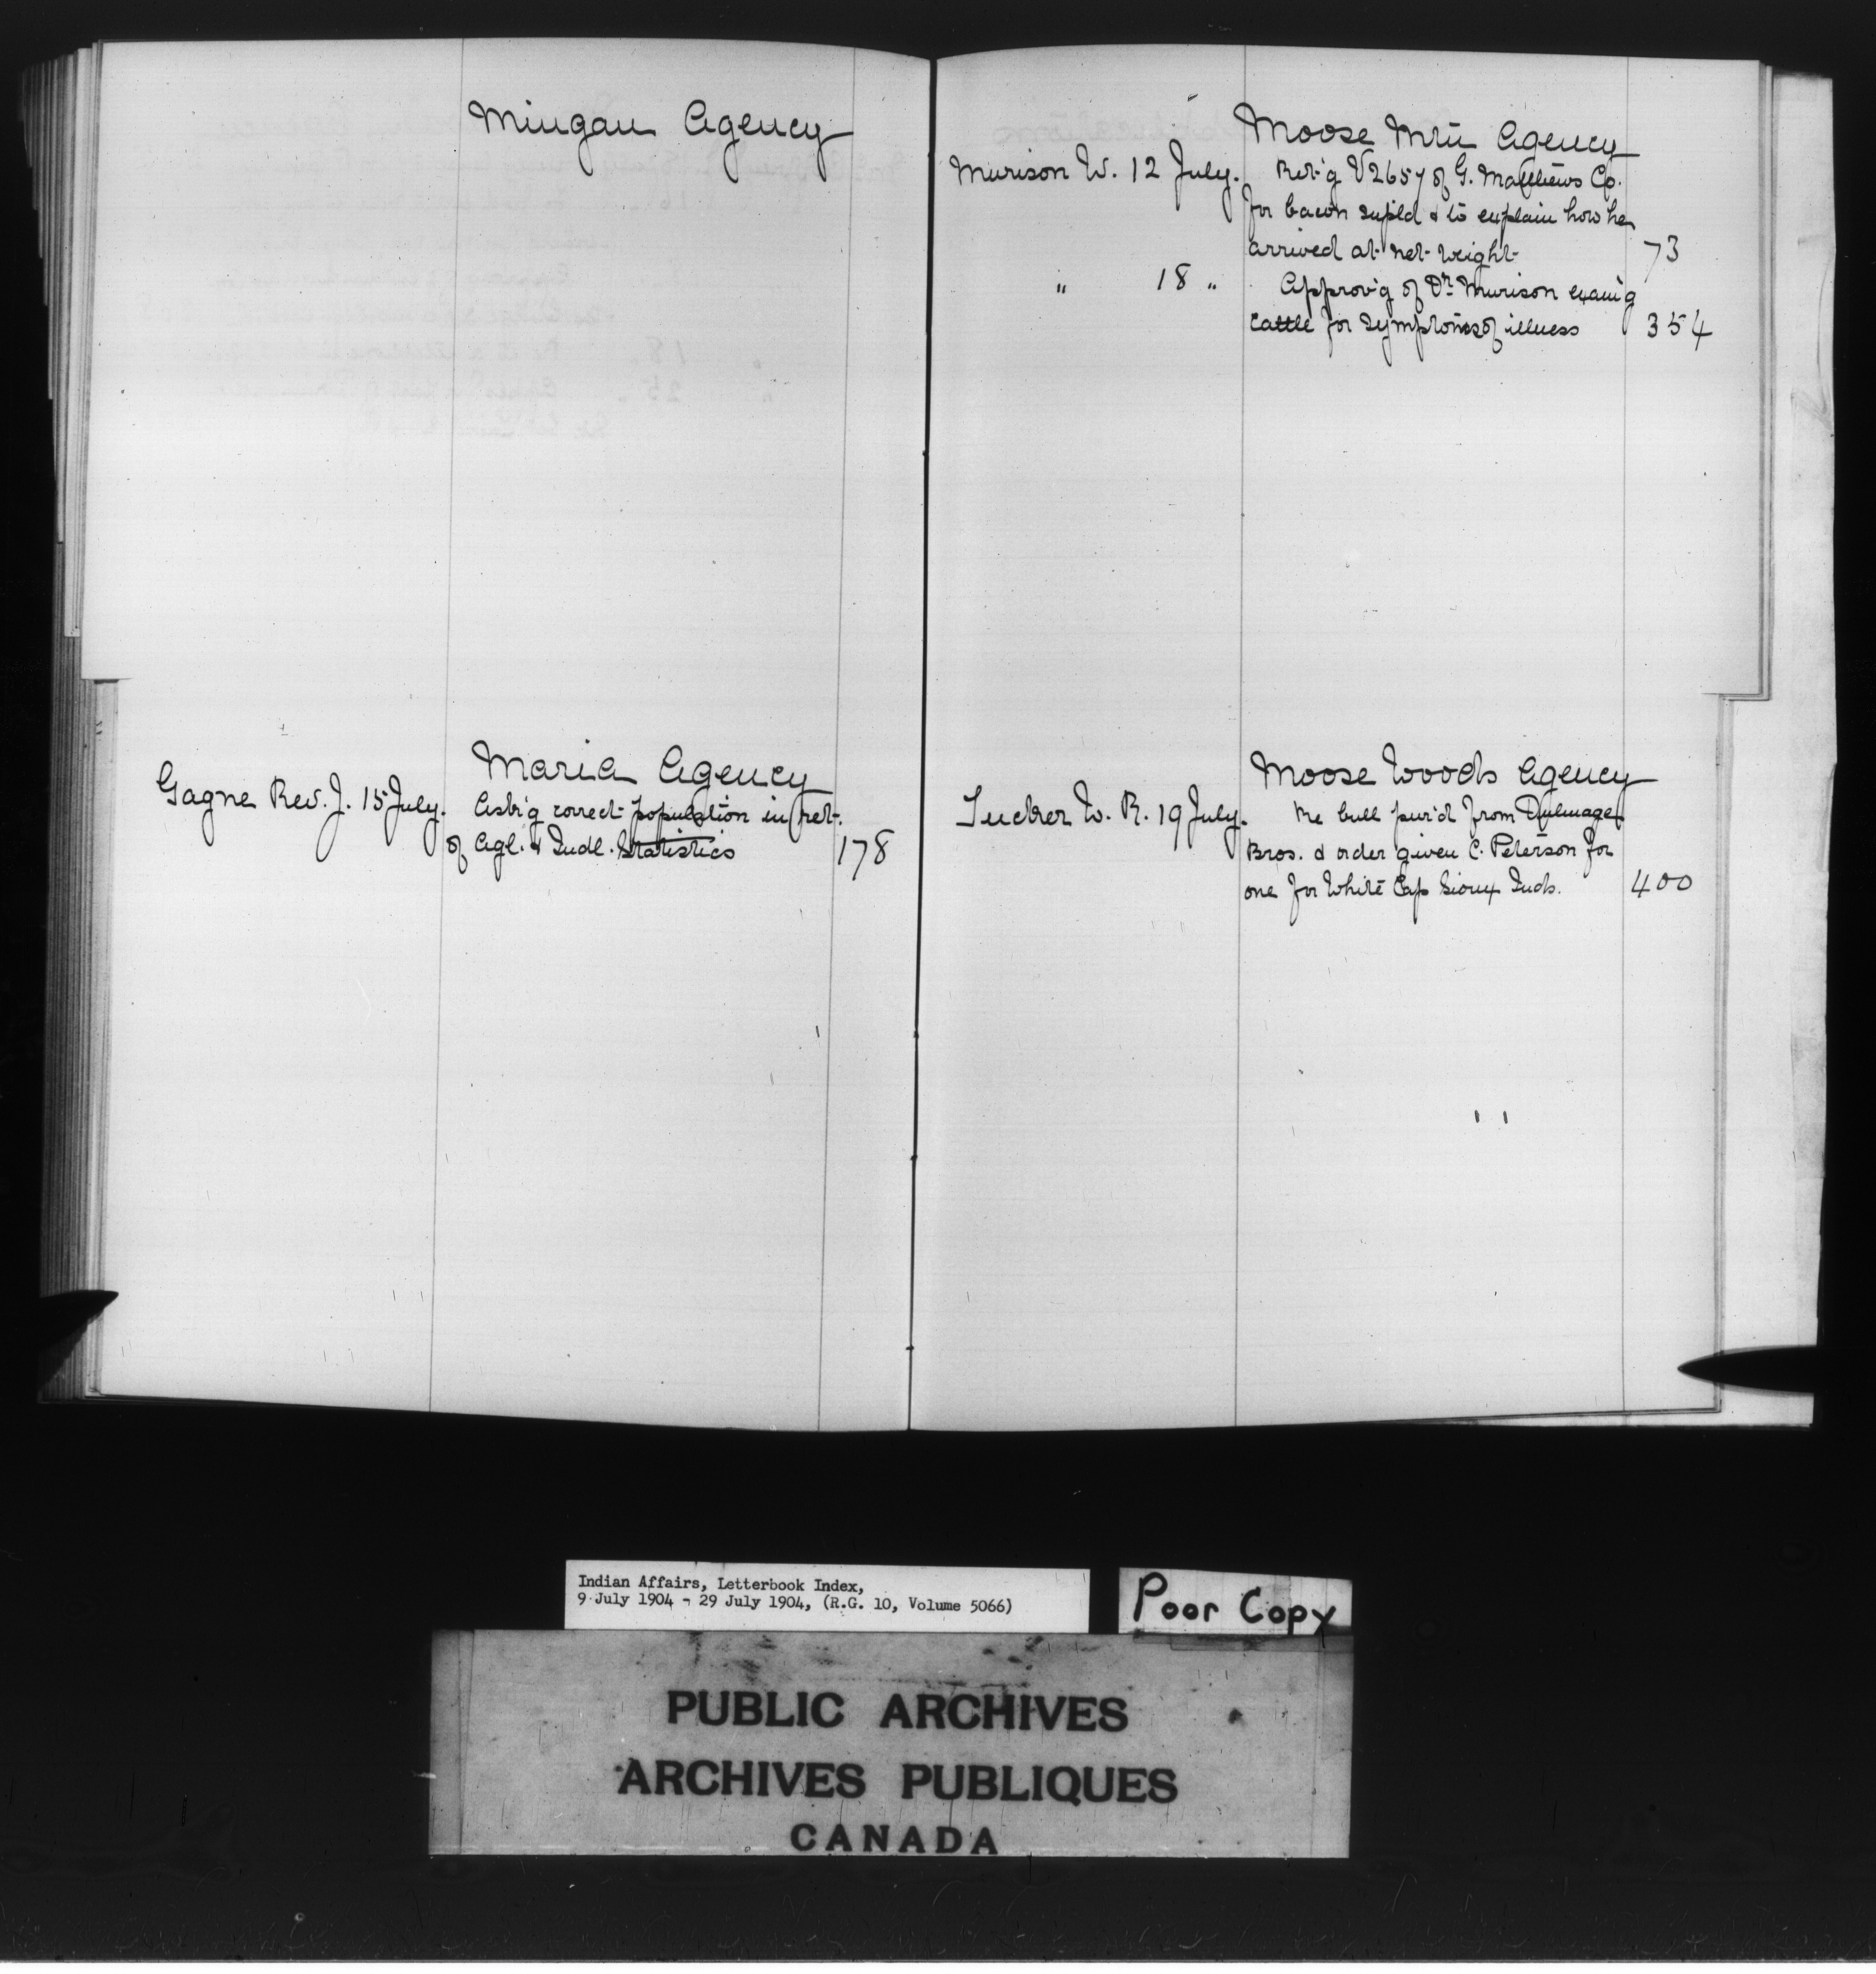 Mingan Agency
Maria Agency
Gagne Rev. J. 15 July. Ask'g correct population in ret.
of Agl. & Indl. Statistics 178
Moose Mtn Agency
Murison W. 12 July. Ret'g V2657 of G. Matthews Co.
for bacon supl'd & to explain how he
arrived at net weight 73
" 18 " Approv'g of Dr. Murison exam'g
cattle for symptoms of illness 354
Moose Woods Agency
Tucker W. R. 19 July. Re bull pur'd from Dulmage
Bros. & order given C. Peterson for
one for White Cap Sioux Inds. 400
Indian Affairs, Letterbook Index,
9 July 1904 - 29 July 1904, (R.G. 10, Volume 5066)
Poor Copy
PUBLIC ARCHIVES
ARCHIVES PUBLIQUES
CANADA